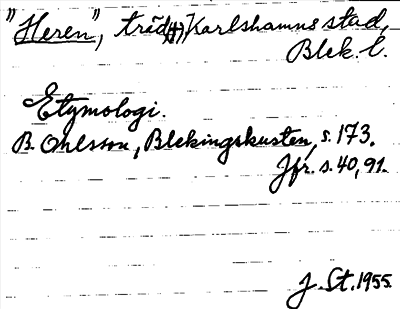 "Heren", träd(g) Karlshamns stad,
Blek. l.
Etymologi.
B. Ohlsson, Blekingskusten, s. 173.
Jfr. s. 40, 91.
J. St. 1955.